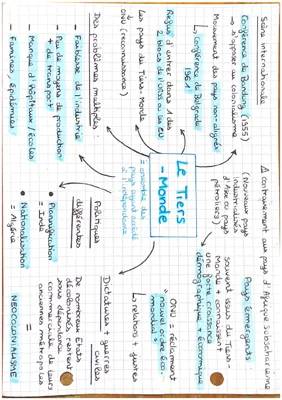 Scène internationale
Conférence de Bandung (1955)
→ s'opposer au colonialisme
Mouvement des pays non-alignés
↳ Conférence de Belgrade
1961
Refus d'entrer dans 1 des
2 blocs de l'URSS ou les EU
Les pays du Tiers-Monde
↓
ONU (reconnaissance)
Des problèmes multiples
- Faiblesse de l'industrie
- Peu de moyens de production
+ de transport
- Manque d'hôpitaux / écoles
- Famines, épidémies
Le Tiers
-Monde
= ensemble des
pays ayant accédé
à l'indépendance
Δ contrairement aux pays d'Afrique subsaharienne
(Nouveaux pays
industrialisés
d'Asie ou pays
pétroliers)
Pays émergents
souvent issus du Tiers-
Monde + connaissent
une forte croissance
démographique + économique
ONU = réclament
"nouvel ordre éco-
mondial"
↳ relations + justes
Dictatures + guerres
civiles
Politiques
différentes
• Planification
= Inde
• Nationalisation
= Algérie
De nombreux Etats
décolonisés restent
sous dépendance
commerciale de leurs
anciennes métropoles
=
NEOCOLONIALISME